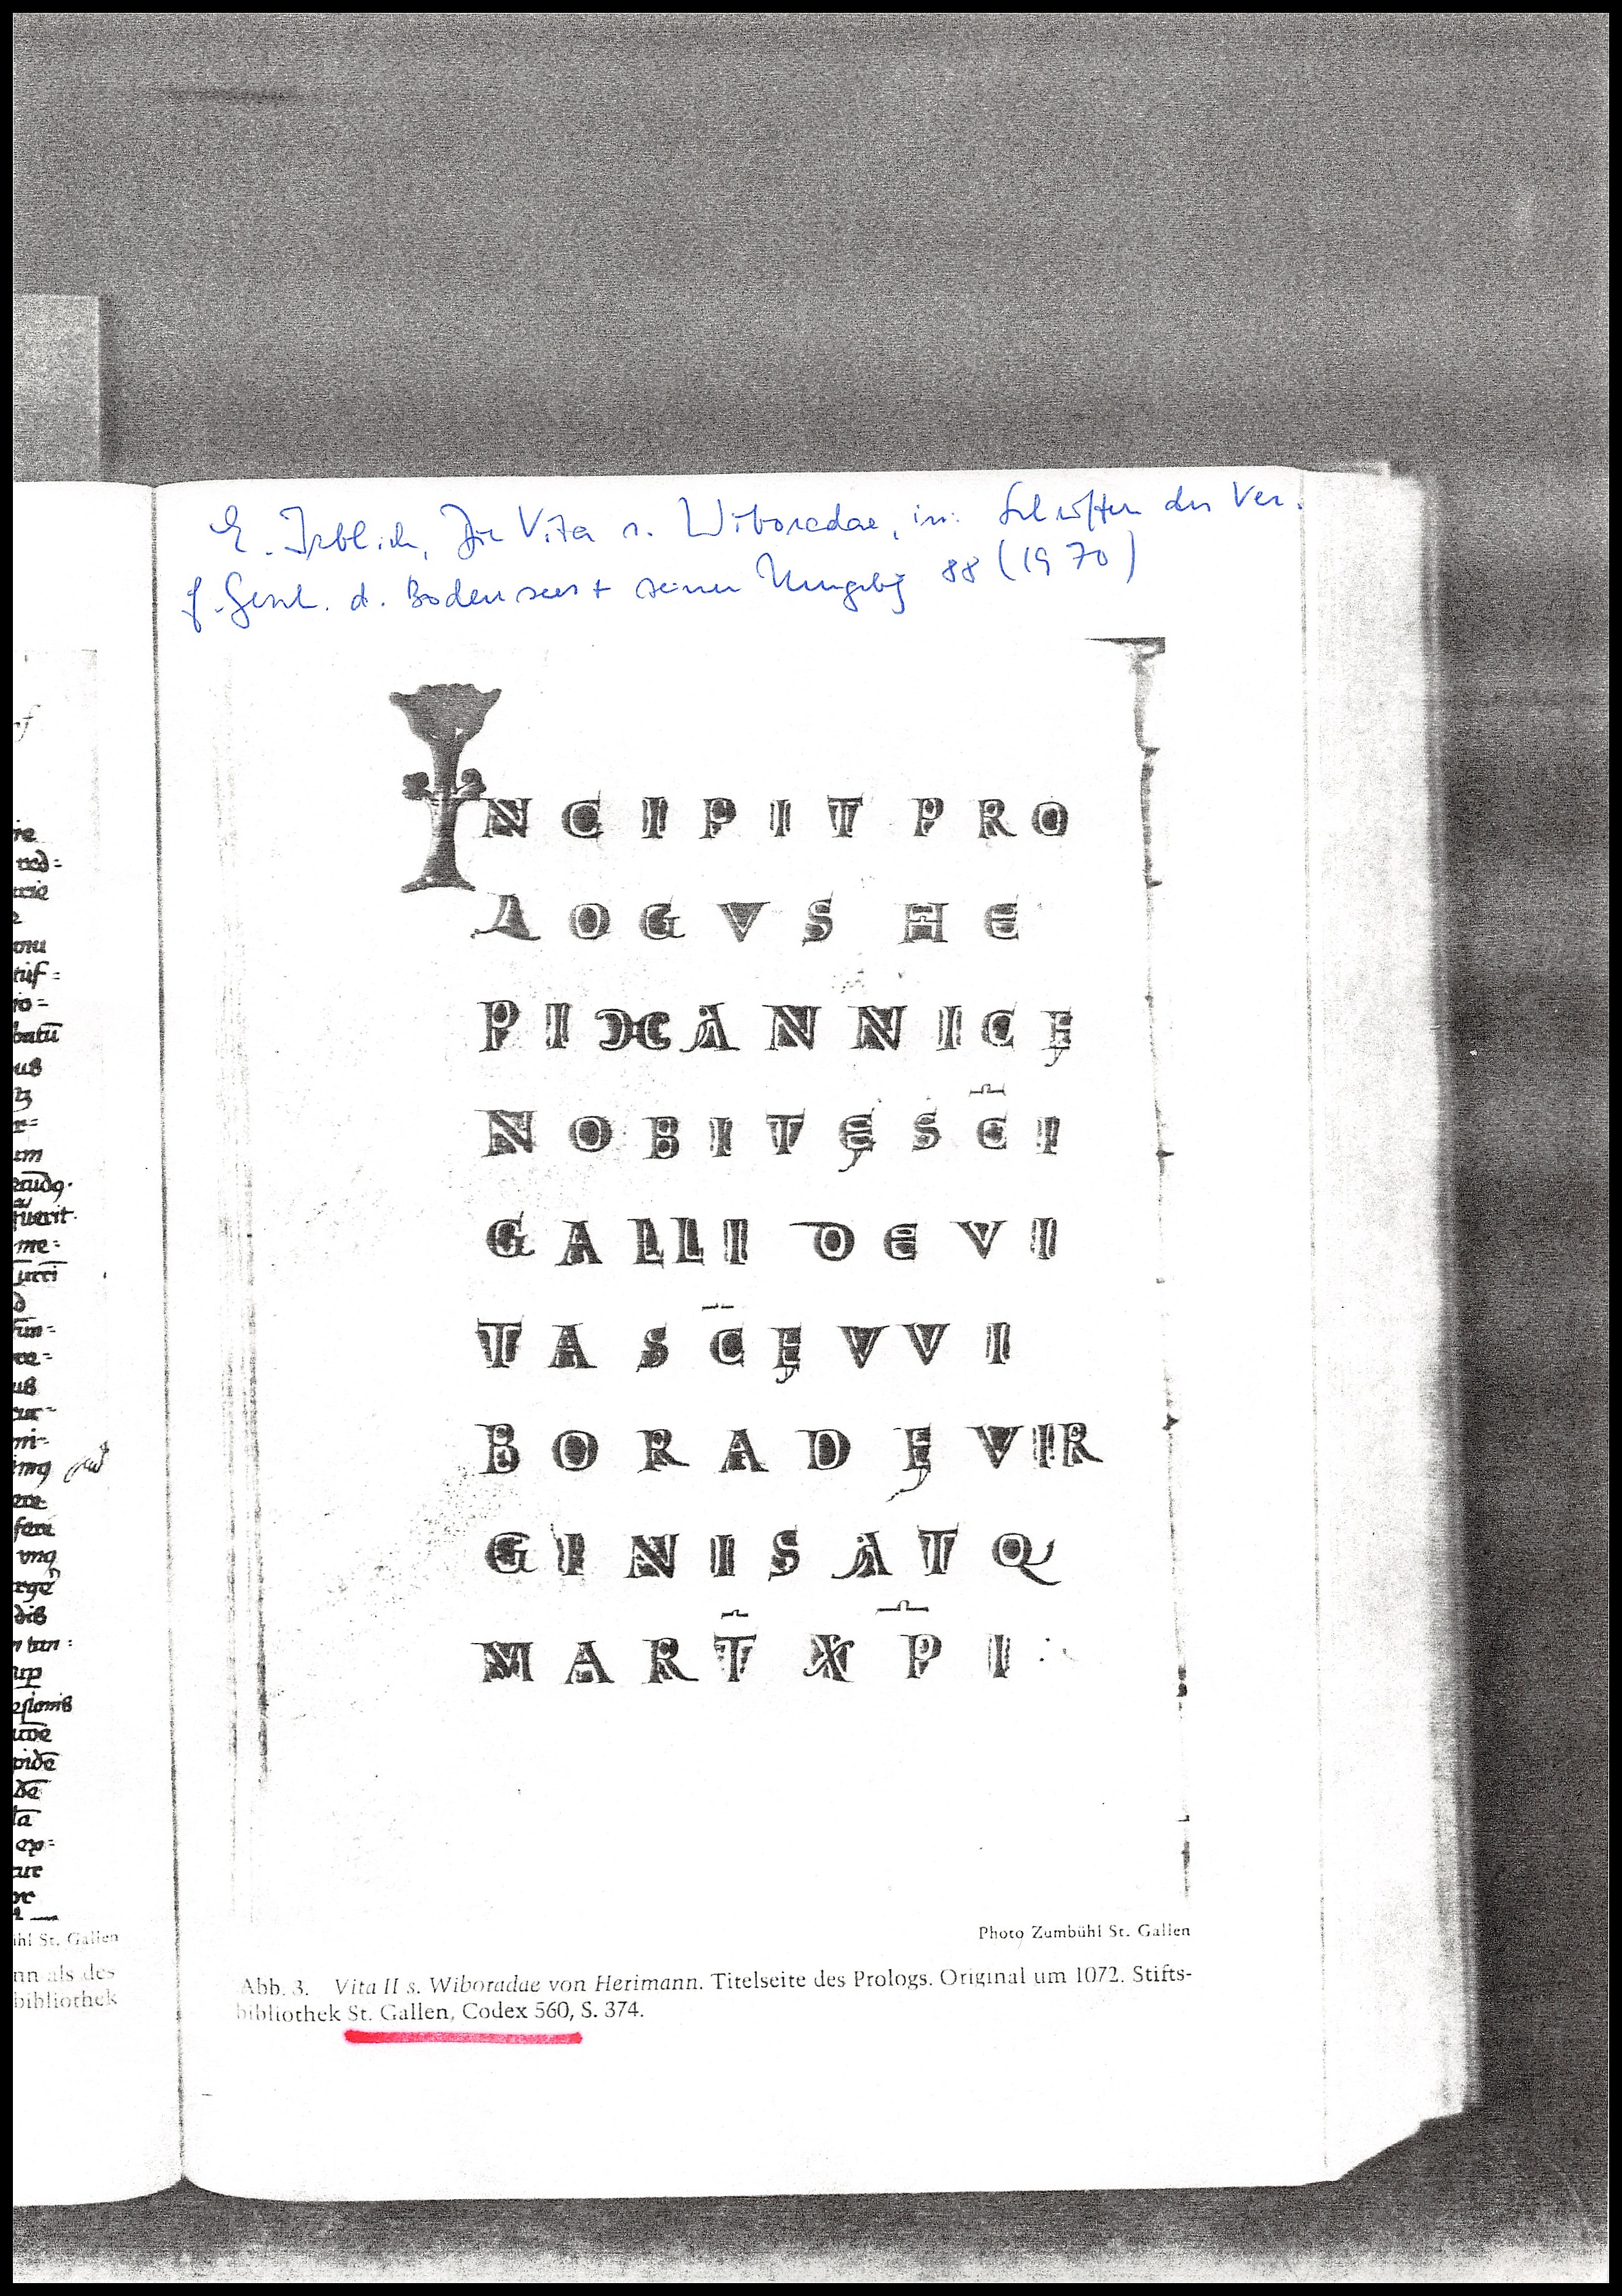 E. Irblich, Die Vita s. Wiboradae, in: Schriften des Ver.
f. Gesch. d. Bodensees + seiner Umgebg 88 (1970)
INCIPIT PRO
LOGVS HE
PIMANNI CĘ
NOBITĘ SC̄I
GALLI DE VI
TA SC̄Ę VVI
BORADĘ VIR
GINIS ATQ
MART̄ XP̄I
Photo Zumbühl St. Gallen
Abb. 3. Vita II s. Wiboradae von Herimann. Titelseite des Prologs. Original um 1072. Stifts-
bibliothek St. Gallen, Codex 560, S. 374.
St. Gallen
nn als des
bibliothek